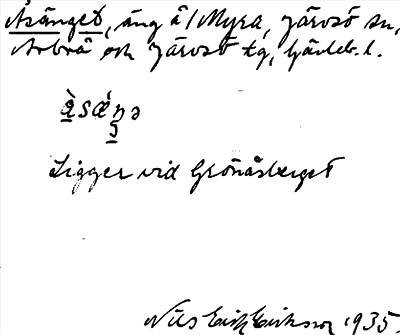 Åsänget, äng å Myra, Järvsö sn,
Arbrå och Järvsö tg, Gävleb. l.
å̀sǽŋə
Ligger vid Grönåsberget
Nils Erik Eriksson 1935.